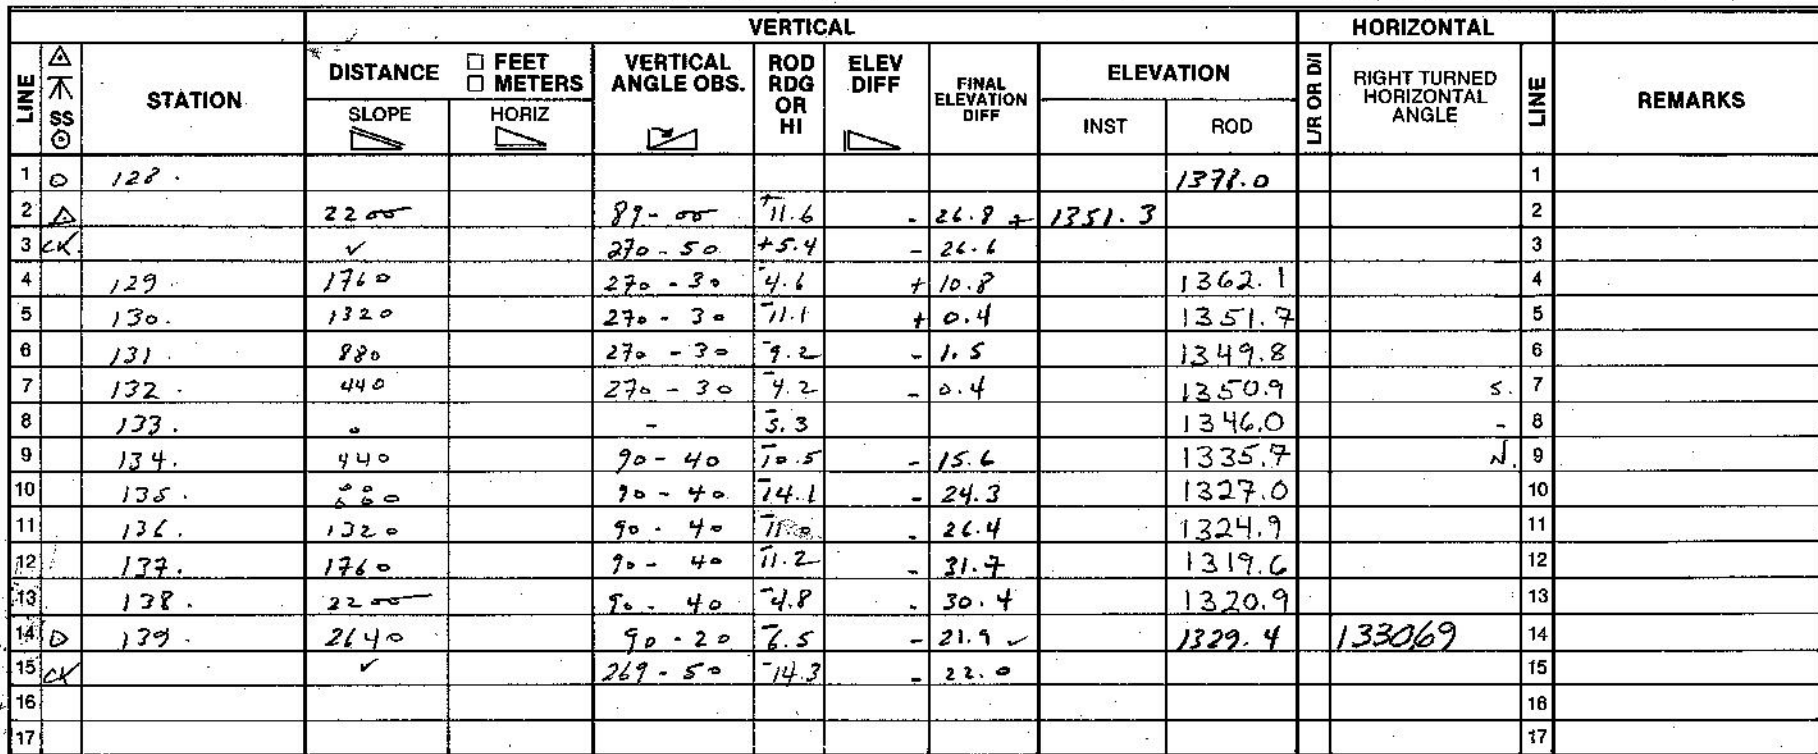 VERTICAL HORIZONTAL
LINE SS STATION DISTANCE □ FEET □ METERS SLOPE HORIZ VERTICAL ANGLE OBS. ROD RDG OR HI ELEV DIFF FINAL ELEVATION DIFF ELEVATION INST ROD L/R OR D/I RIGHT TURNED HORIZONTAL ANGLE LINE REMARKS
1 128. 1378.0 1
2 2200 89-00 +11.6 - 26.8 + 1351.3 2
3 CK ✓ 270-50 +5.4 - 26.6 3
4 129 1760 270-30 -4.6 + 10.8 1362.1 4
5 130. 1320 270-30 -11.1 + 0.4 1351.7 5
6 131. 880 270-30 -9.2 - 1.5 1349.8 6
7 132. 440 270-30 -4.2 - 0.4 1350.9 S. 7
8 133. 0 - -5.3 1346.0 - 8
9 134. 440 90-40 -10.5 - 15.6 1335.7 N. 9
10 135. 880 90-40 -14.1 - 24.3 1327.0 10
11 136. 1320 90-40 -11.0 - 26.4 1324.9 11
12 137. 1760 90-40 -11.2 - 31.7 1319.6 12
13 138. 2200 90-40 -4.8 - 30.4 1320.9 13
14 139. 2640 90-20 -6.5 - 21.9 ✓ 1329.4 133069 14
15 CK ✓ 269-50 -14.3 - 22.0 15
16 16
17 17